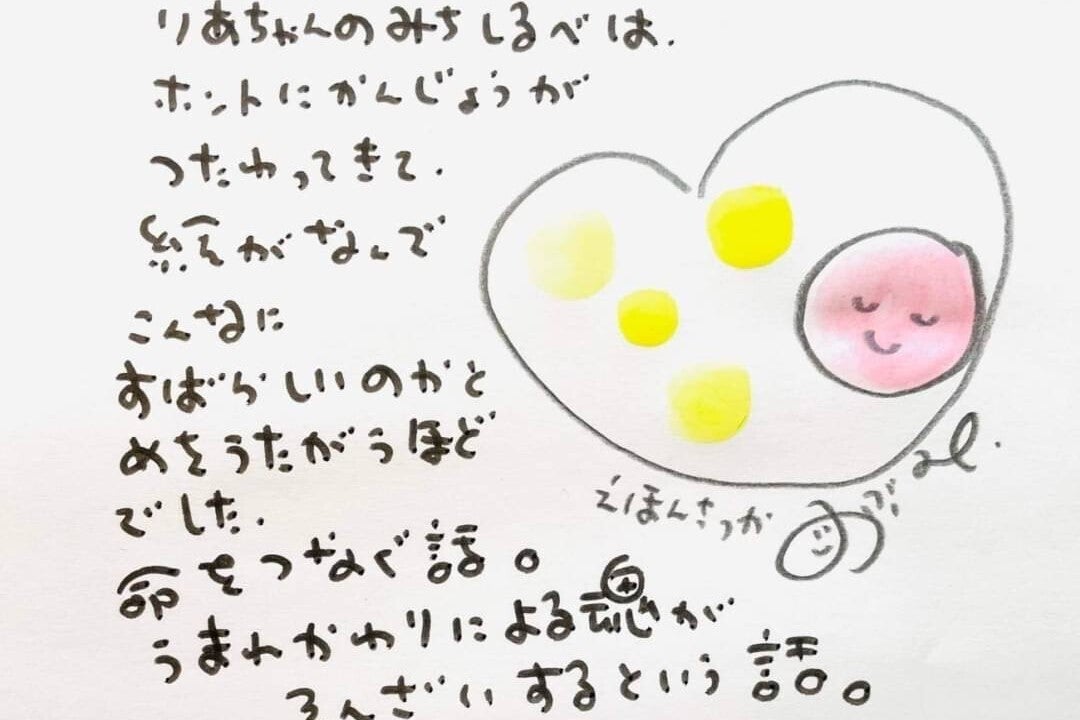 りあちゃんのみちしるべは、
ホントにかんじょうが
つたわってきて、
絵がなんで
こんなに
すばらしいのかと
めをうたがうほど
でした、
命をつなぐ話。
うまれかわりによる魂が
そんざいするという話。
えほんさっか のぶみ